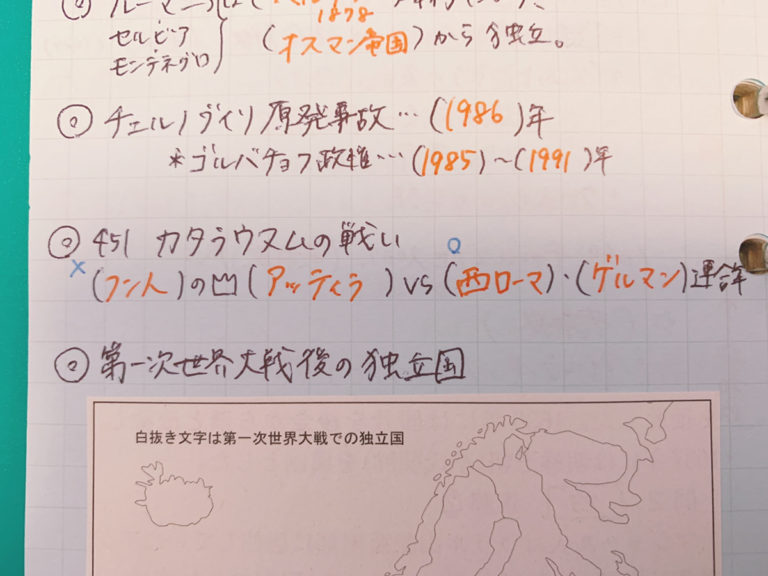 ルーマニア
1878
セルビア
モンテネグロ (オスマン帝国)から独立。
◎ チェルノブイリ原発事故…(1986)年
*ゴルバチョフ政権…(1985)~(1991)年
◎ 451 カタラウヌムの戦い
× (フン人)の凹(アッティラ) vs ○(西ローマ)・(ゲルマン)連合軍
◎ 第一次世界大戦後の独立国
白抜き文字は第一次世界大戦での独立国